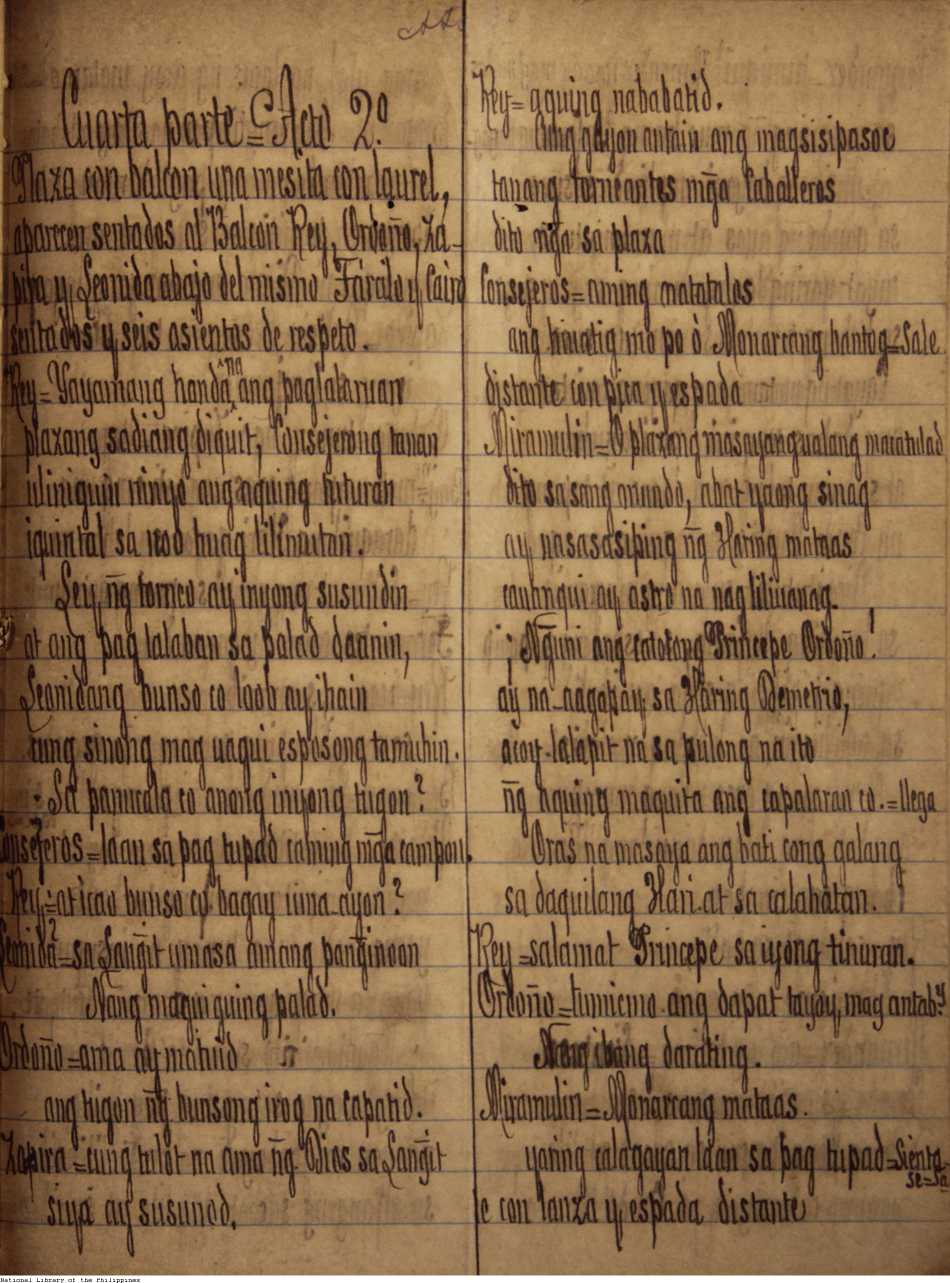 Cuarta parte = C. Acto 2º
Plaza con balcon una mesita con laurel,
aparecen sentados al Balcon Rey, Ordoño, Za-
pira y Leonida abajo del mismo Farailo y Cairo
sentados y seis asientos de respeto.
Rey= Yayamang handa na ang paglalaruan
plazang sadiang diquit, Consejerong tanan
uliniguin ninyo ang aquing tuturan
iquintal sa noo huag lilimutan.
Ley n͠g torneo ay inyong susundin
at ang pag lalaban sa palad daanin,
Leonidang bunso co loob ay ihain
cung sinong mag uagui esposong tamuhin.
Sa panucala co anong inyong tugon?
Consejeros=laan sa pag tupad caming mg̃a campon.
Rey=at icao bunso co bagay cuna-ayon?
Leonida=sa Lang̃it umasa amang pang̃inoon
Nang maguiguing palad.
Ordoño=ama ay matuid
ang tugon n͠g bunsong irog na capatid.
Zapira=cung tulot na ama n͠g Dios sa Lang̃it
siya ay susunod.
Rey= aquing nababatid.
Cung gayon antain ang magsisipasoc
tanang torneantes mg̃a Caballeros
dito ng̃a sa plaza
Consejeros=aming matatalos
ang hinatig mo po ò Monarcang bantóg=Sale
distante con pica y espada
Miramulin=O plazang masayang ualang macatulad
dito sa sang mundo, abat yaong sinag
ay nasasasiping n͠g Haring mataas
tauhriqui ay astro na nagliliuanag.
¡Ng̃uni ang catotong Principe Ordoño!
ay na-aagapay sa Haring Demetrio,
acoy lalapit na sa pulong na ito
n͠g aquing maquita ang capalaran co.=llega
Oras na masaya ang bati cong galang
sa daquilang Hari at sa calahatan.
Rey=salamat Principe sa iyong tinuran.
Ordoño=lumicmo ang dapat tayoy, mag antabay
Nang ibang darating.
Miramulin=Monarcang mataas.
yaring calagayan laan sa pag tupad=Sienta-
se=Sa
le con lanza y espada distante
National Library of the Philippines